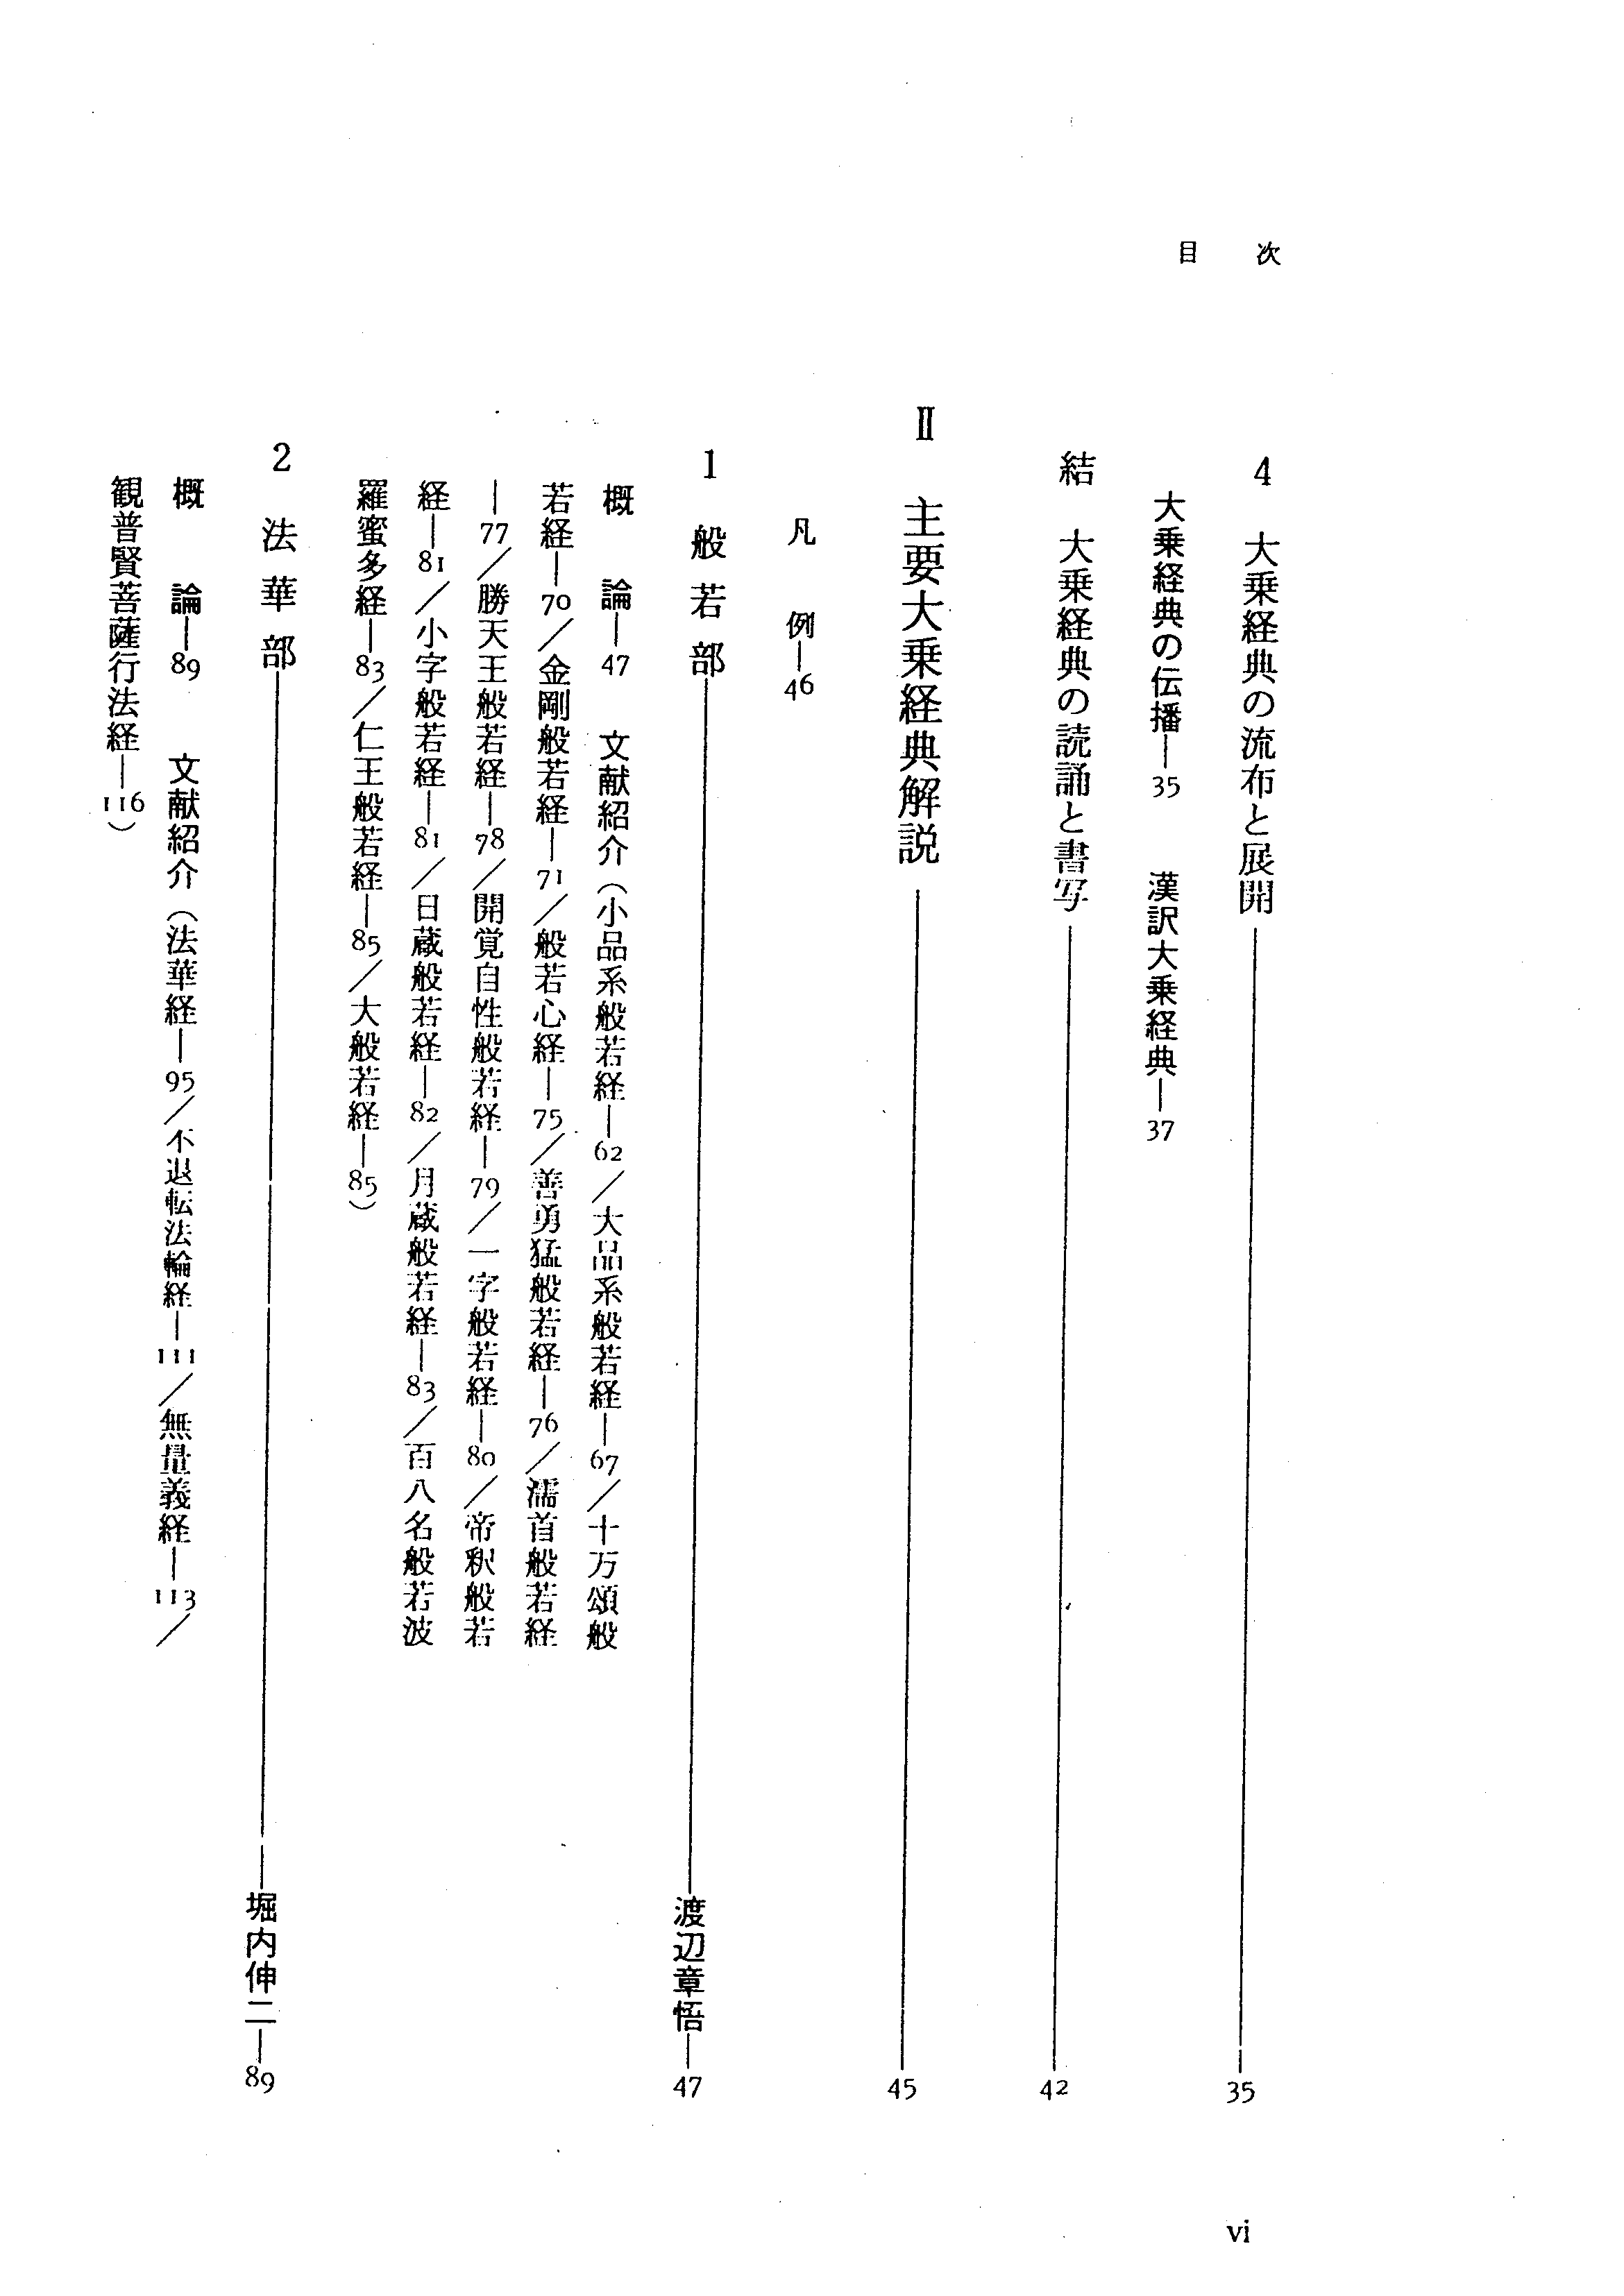 目次
4　大乗経典の流布と展開――35
大乗経典の伝播―35　漢訳大乗経典―37
結　大乗経典の読誦と書写――42
Ⅱ　主要大乗経典解説――45
凡例―46
1　般若部――渡辺章悟―47
概論―47　文献紹介（小品系般若経―62／大品系般若経―67／十万頌般
若経―70／金剛般若経―71／般若心経―75／善勇猛般若経―76／濡首般若経
―77／勝天王般若経―78／開覚自性般若経―79／一字般若経―80／帝釈般若
経―81／小字般若経―81／日蔵般若経―82／月蔵般若経―83／百八名般若波
羅蜜多経―83／仁王般若経―85／大般若経―85）
2　法華部――堀内伸二―89
概論―89　文献紹介（法華経―95／不退転法輪経―111／無量義経―113／
観普賢菩薩行法経―116）
vi